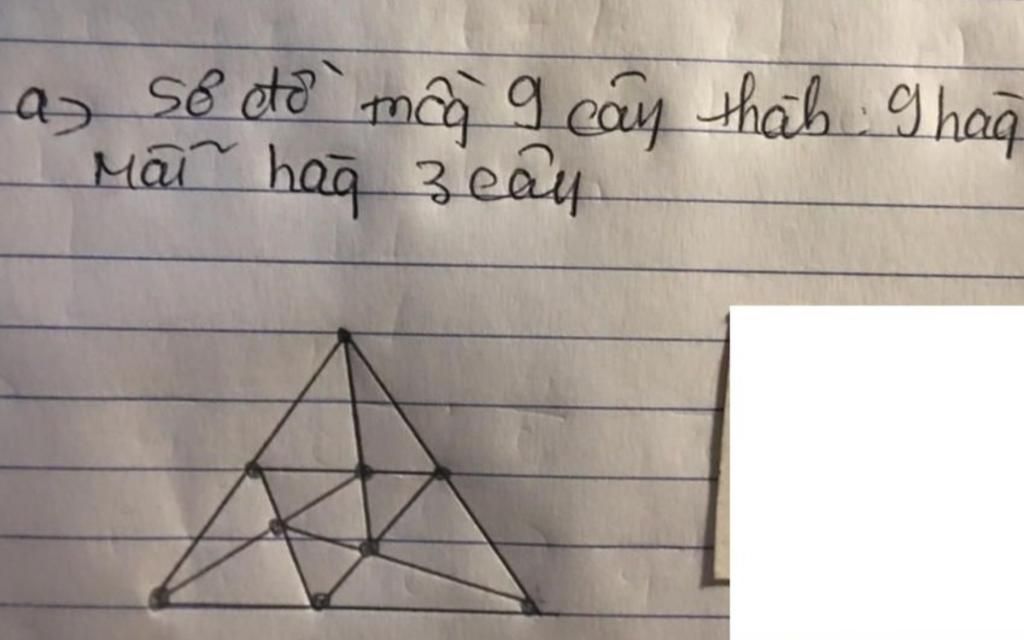 a) Sơ đồ trồng 9 cây thành: 9 hàng
Mỗi hàng 3 cây